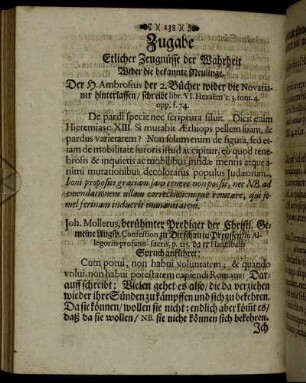 138
Zugabe
Etlicher Zeugnisse der Wahrheit
Wider die bekannte Neulinge.
Der H. Ambrosius der 2. Bücher wider die Novatia-
ner hinterlassen / schreibt libr. VI. Hexaëm c. 3. tom. 4.
opp. f. 74.
De pardi specie nec scriptura siluit. Dicit enim
Hieremiasc XIII. Si mutabit Æthiops pellem suam, &
pardus varietatem? Non solum enim de figura, sed eti-
am de mobilitate furoris istud accipitur, eo quod tene-
brosis & inquietis ac mobilibus infidæ mentis atque a-
nimi mutationibus decoloratus populus Judæorum,
boni propositi gratiam jam tenere non possit, nec NB. ad
emendationem ullam correctionemque remeare, qui se-
mel ferinam induerit
Joh. Molletus, berühmter Prediger der Christl. Ge-
meine Augsp. Confession zu Dirschau in Preussen in Al-
legoriis profano-sacris, p. 115. da er Hannibals
Spruch anführet:
Cum potui, non habui voluntatem, & quando
volui, non habui potestatem capiendi Romam: Dar-
auff schreibt: Vielen gehet es also / die da verziehen
wieder ihre Sünden zu kämpffen und sich zu bekehren.
Da sie können / wollen sie nicht; endlich aber kömt es /
daß da sie wollen / NB. sie nicht können sich bekehren.
Ich